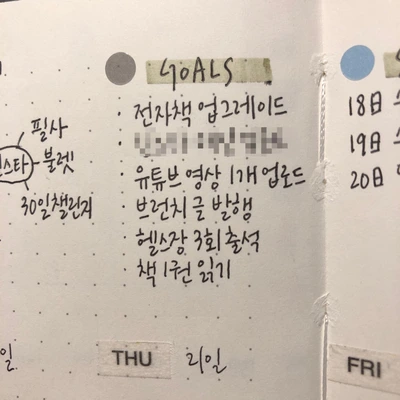 GOALS
· 전자책 업그레이드
· 유튜브 영상 1개 업로드
· 브런치 글 발행
· 헬스장 3회 출석
· 책 1권 읽기
필사
불렛
30일챌린지
THU
18일
19일
20일
FRI